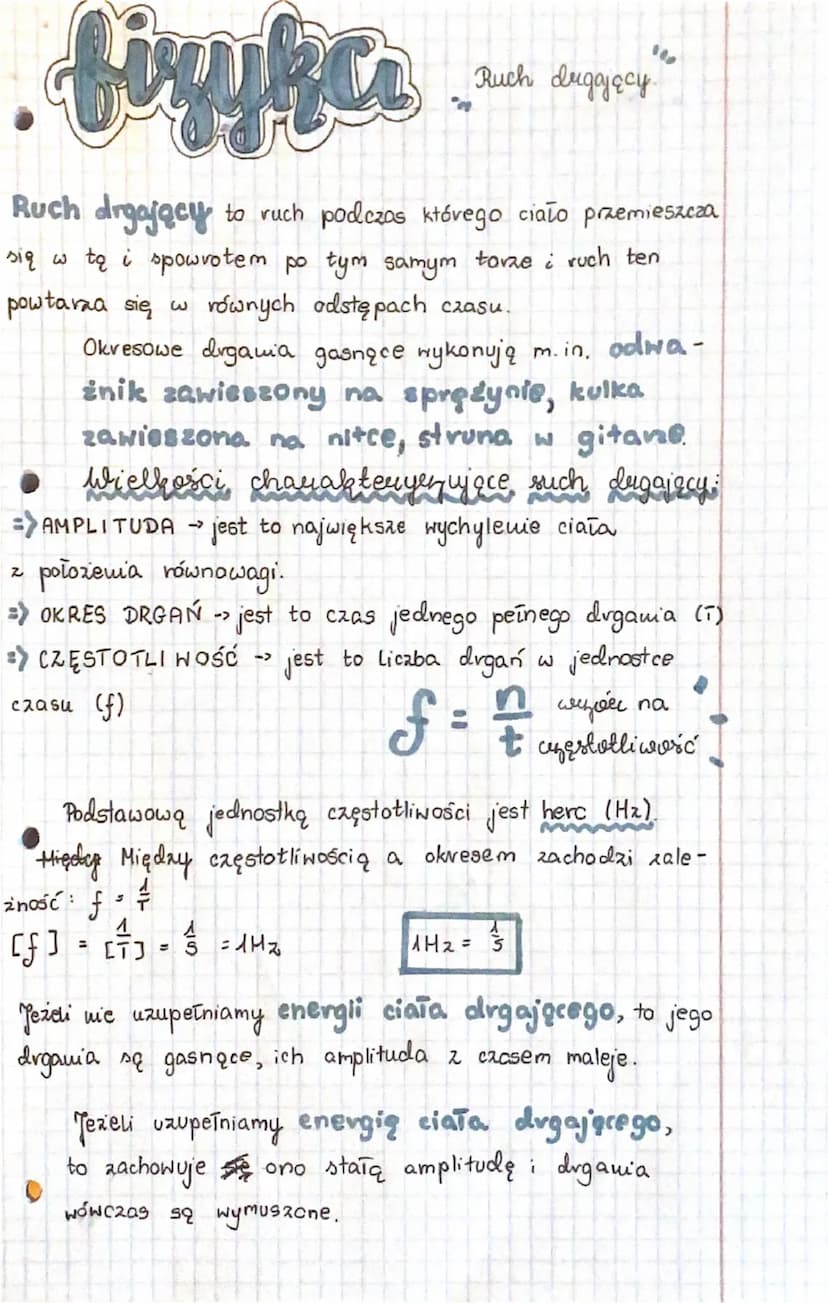 fizyka
"Ruch drgający"
Ruch drgający to ruch podczas którego ciało przemieszcza
się w tę i spowrotem po tym samym torze i ruch ten
powtarza się w równych odstępach czasu.
Okresowe drgania gasnące wykonują m.in. odwa-
żnik zawieszony na sprężynie, kulka
zawieszona na nitce, struna w gitarze.
Wielkości charakteryzujące ruch drgający:
=> AMPLITUDA → jest to największe wychylenie ciała
z położenia równowagi.
=> OKRES DRGAŃ -> jest to czas jednego pełnego drgania (T)
=> CZĘSTOTLIWOŚĆ -> jest to liczba drgań w jednostce
czasu (f)
f = n/t wzór na
częstotliwość
Podstawową jednostką częstotliwości jest herc (Hz).
Między Między częstotliwością a okresem zachodzi zale-
żność: f = 1/T
[f] = 1/[T] = 1/s = 1Hz
1Hz = 1/s
Jeżeli nie uzupełniamy energii ciała drgającego, to jego
drgania są gasnące, ich amplituda z czasem maleje.
Jeżeli uzupełniamy energię ciała drgającego,
to zachowuje się ono stałą amplitudę i drgania
wówczas są wymuszone.